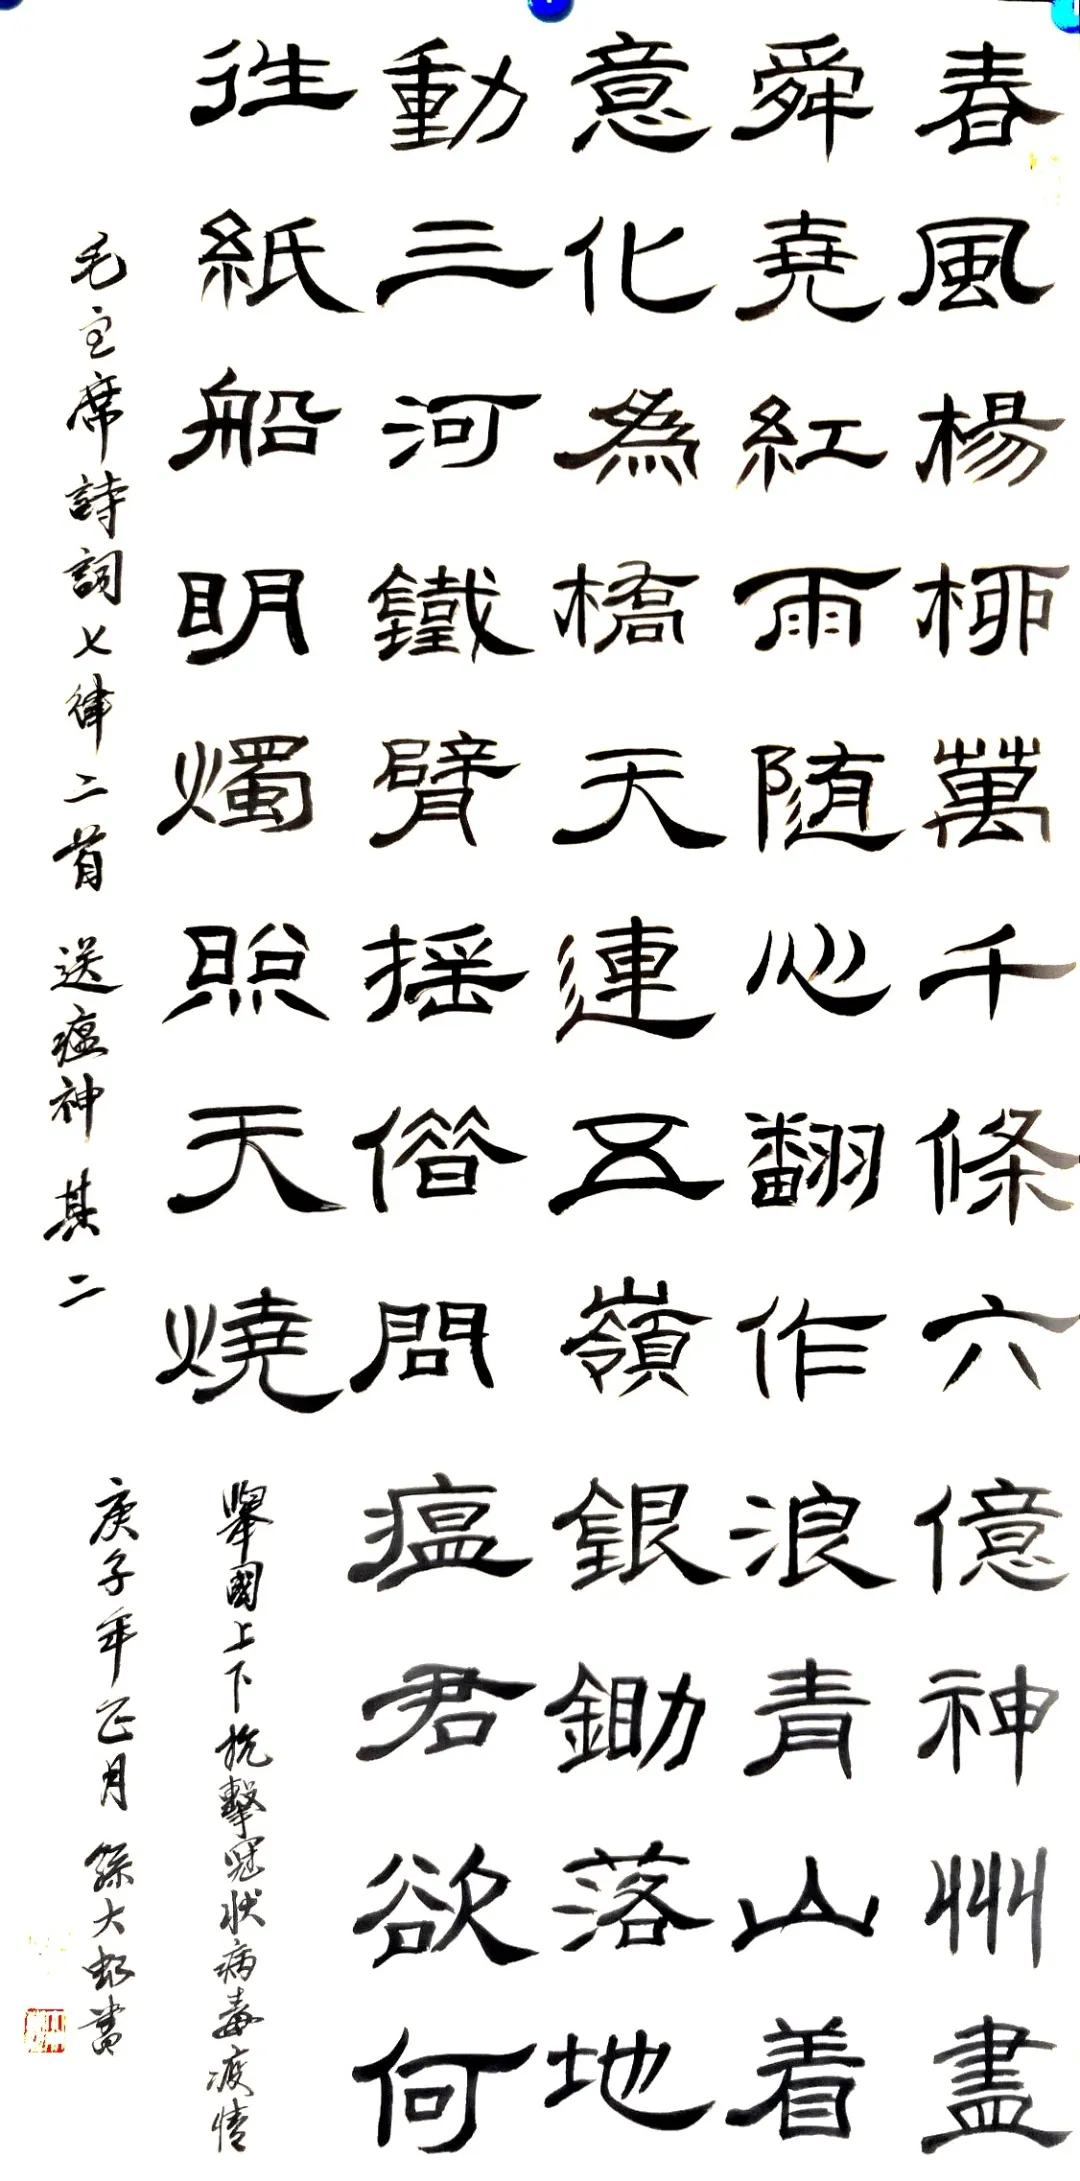 春風楊柳萬千條六億神州盡
舜堯紅雨随心翻作浪青山着
意化為橋天連五嶺銀鋤落地
動三河鐵臂摇借問瘟君欲何
往紙船明燭照天燒
舉國上下抗擊冠状病毒疫情
毛主席詩詞七律二首 送瘟神 其二
庚子年正月 孫大書